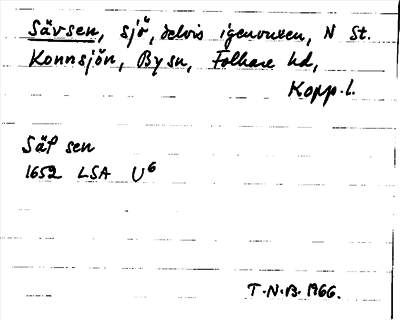 Sävsen, sjö, delvis igenvuxen, N St.
Konnsjön, By sn, Folkare hd,
Kopp. l.
Säf sen
1652 LSA U6
T.N.B. 1966.